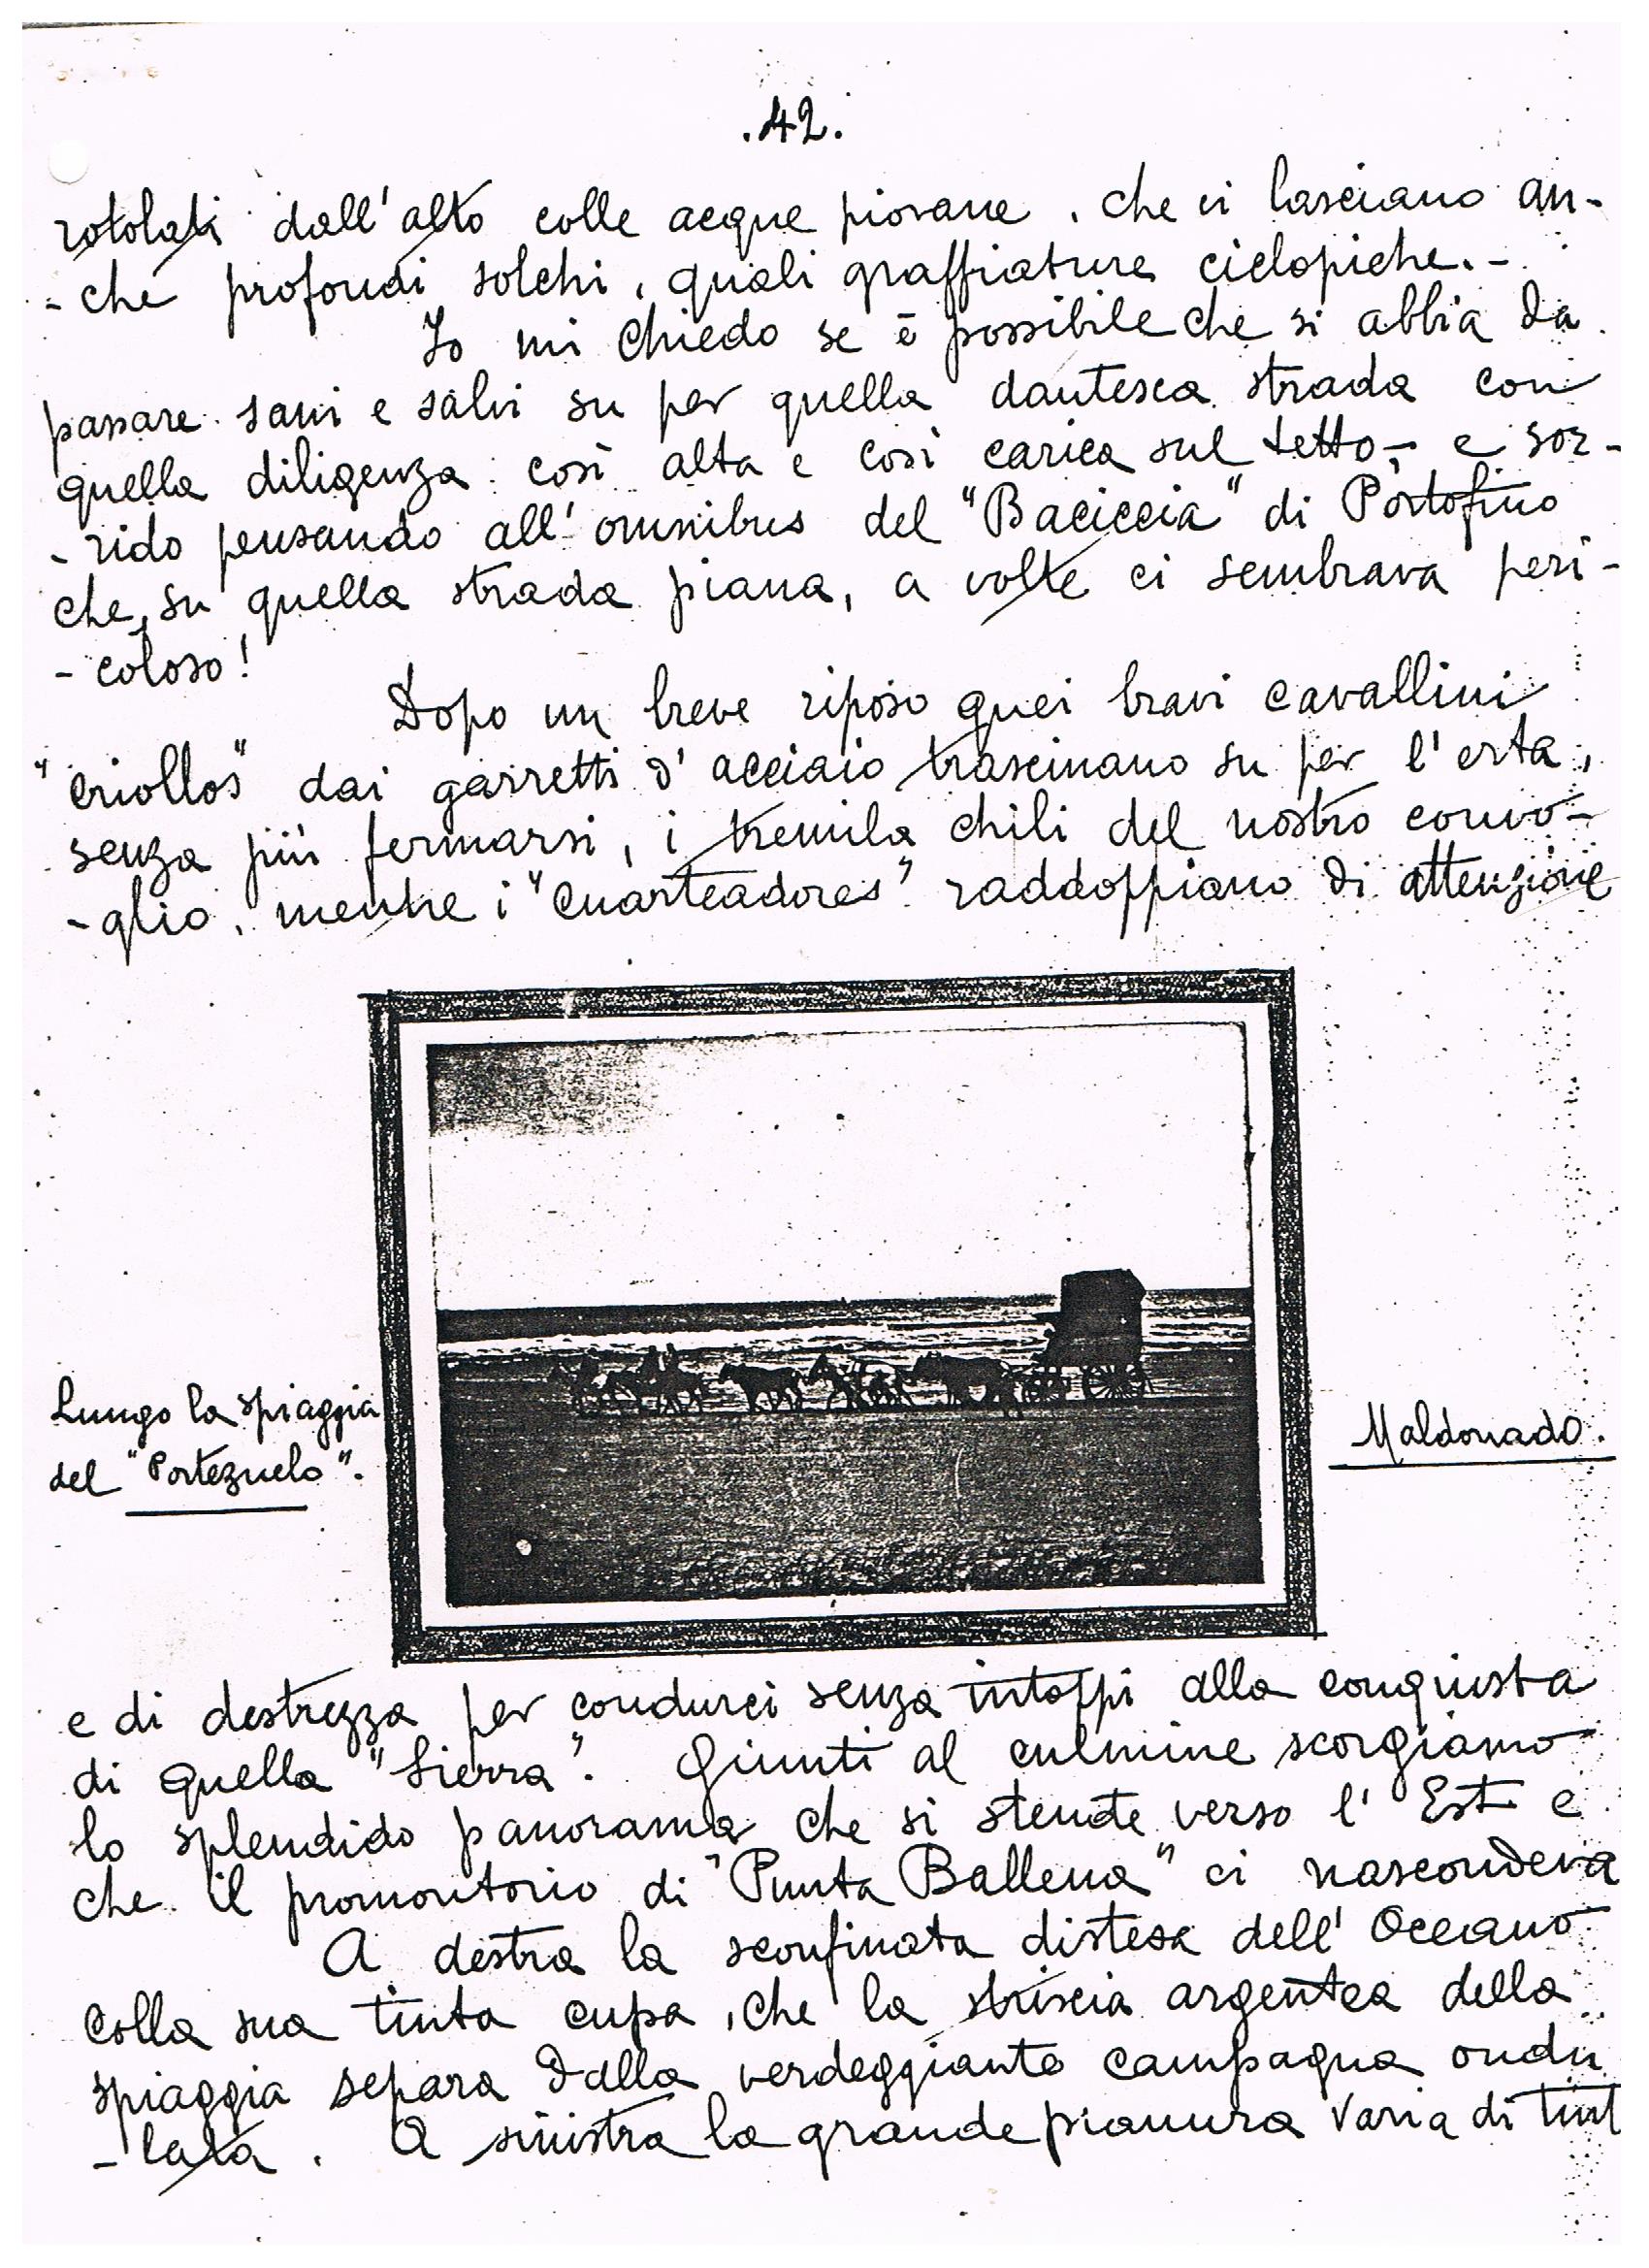 .42.
rotolati dall'alto colle acque piovane, che vi lasciano an-
-che profondi solchi, quali graffiature ciclopiche.-
Io mi chiedo se è possibile che si abbia da
passare sani e salvi su per quella dantesca strada con
quella diligenza così alta e così carica sul tetto, e sor-
-rido pensando all'omnibus del "Baciccia" di Portofino
che, su quella strada piana, a volte ci sembrava peri-
-coloso!
Dopo un breve riposo quei bravi cavallini
"criollos" dai garretti d'acciaio trascinano su per l'erta,
senza più fermarsi, i tremila chili del nostro convo-
-glio, mentre i "cuarteadores" raddoppiano di attenzione
Lungo la spiaggia
del "Portezuelo".
Maldonado.
e di destrezza per condurci senza intoppi alla conquista
di quella "Sierra". Giunti al culmine scorgiamo
lo splendido panorama che si stende verso l'Est e
che il promontorio di "Punta Ballena" ci nascondeva
A destra la sconfinata distesa dell'Oceano
colla sua tinta cupa, che la striscia argentea della
spiaggia separa dalla verdeggiante campagna ondu
-lata. A sinistra la grande pianura varia di tint